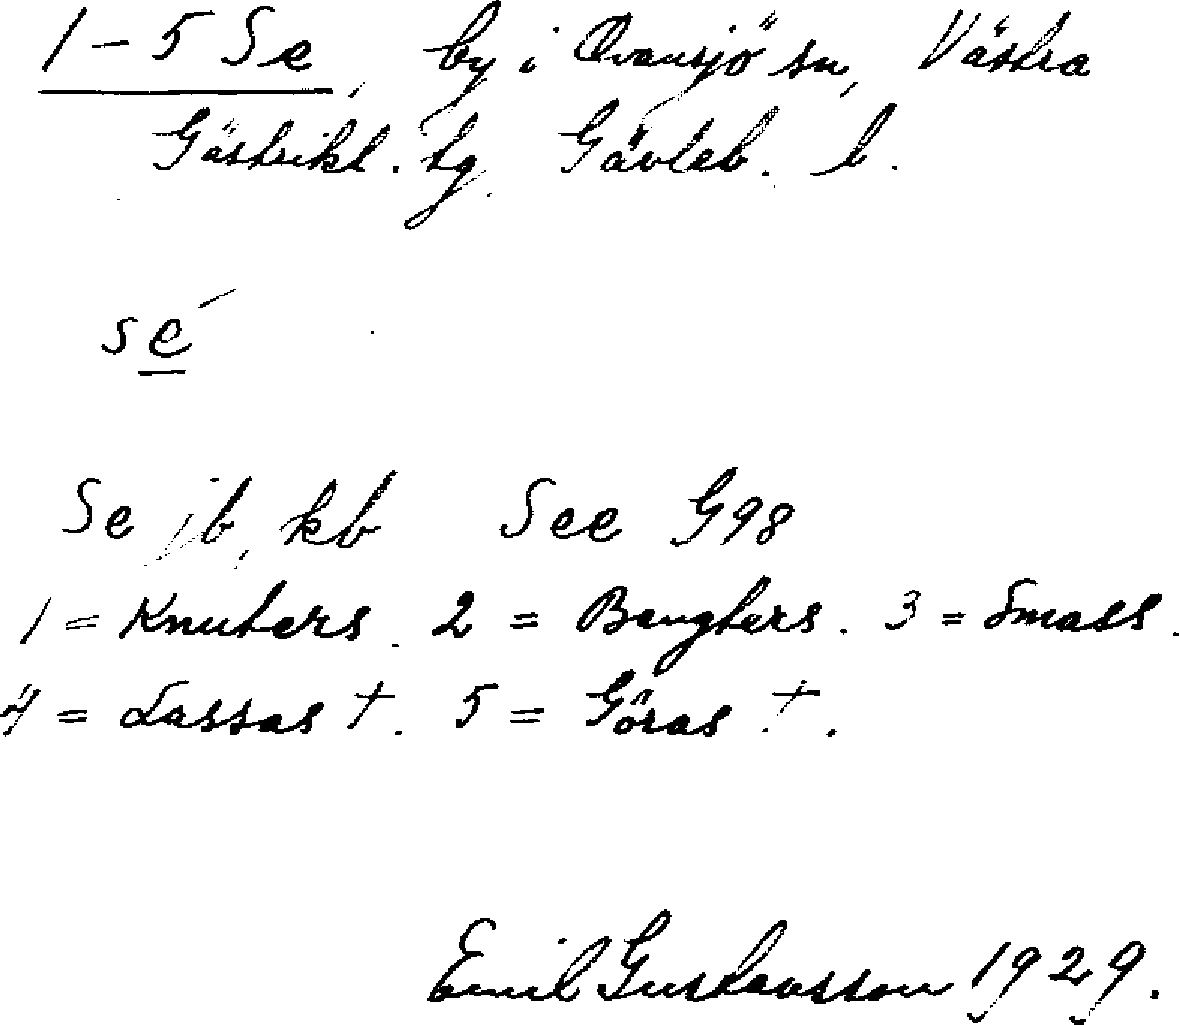 1–5 Se, by i Ovansjö sn, Västra
Gästrikl. tg. Gävleb. l.
sé
Se jb, kb See G98
1 = Knuters. 2 = Bengters. 3 = Smass.
4 = Lassas †. 5 = Göras †.
Emil Gustavsson 1929.